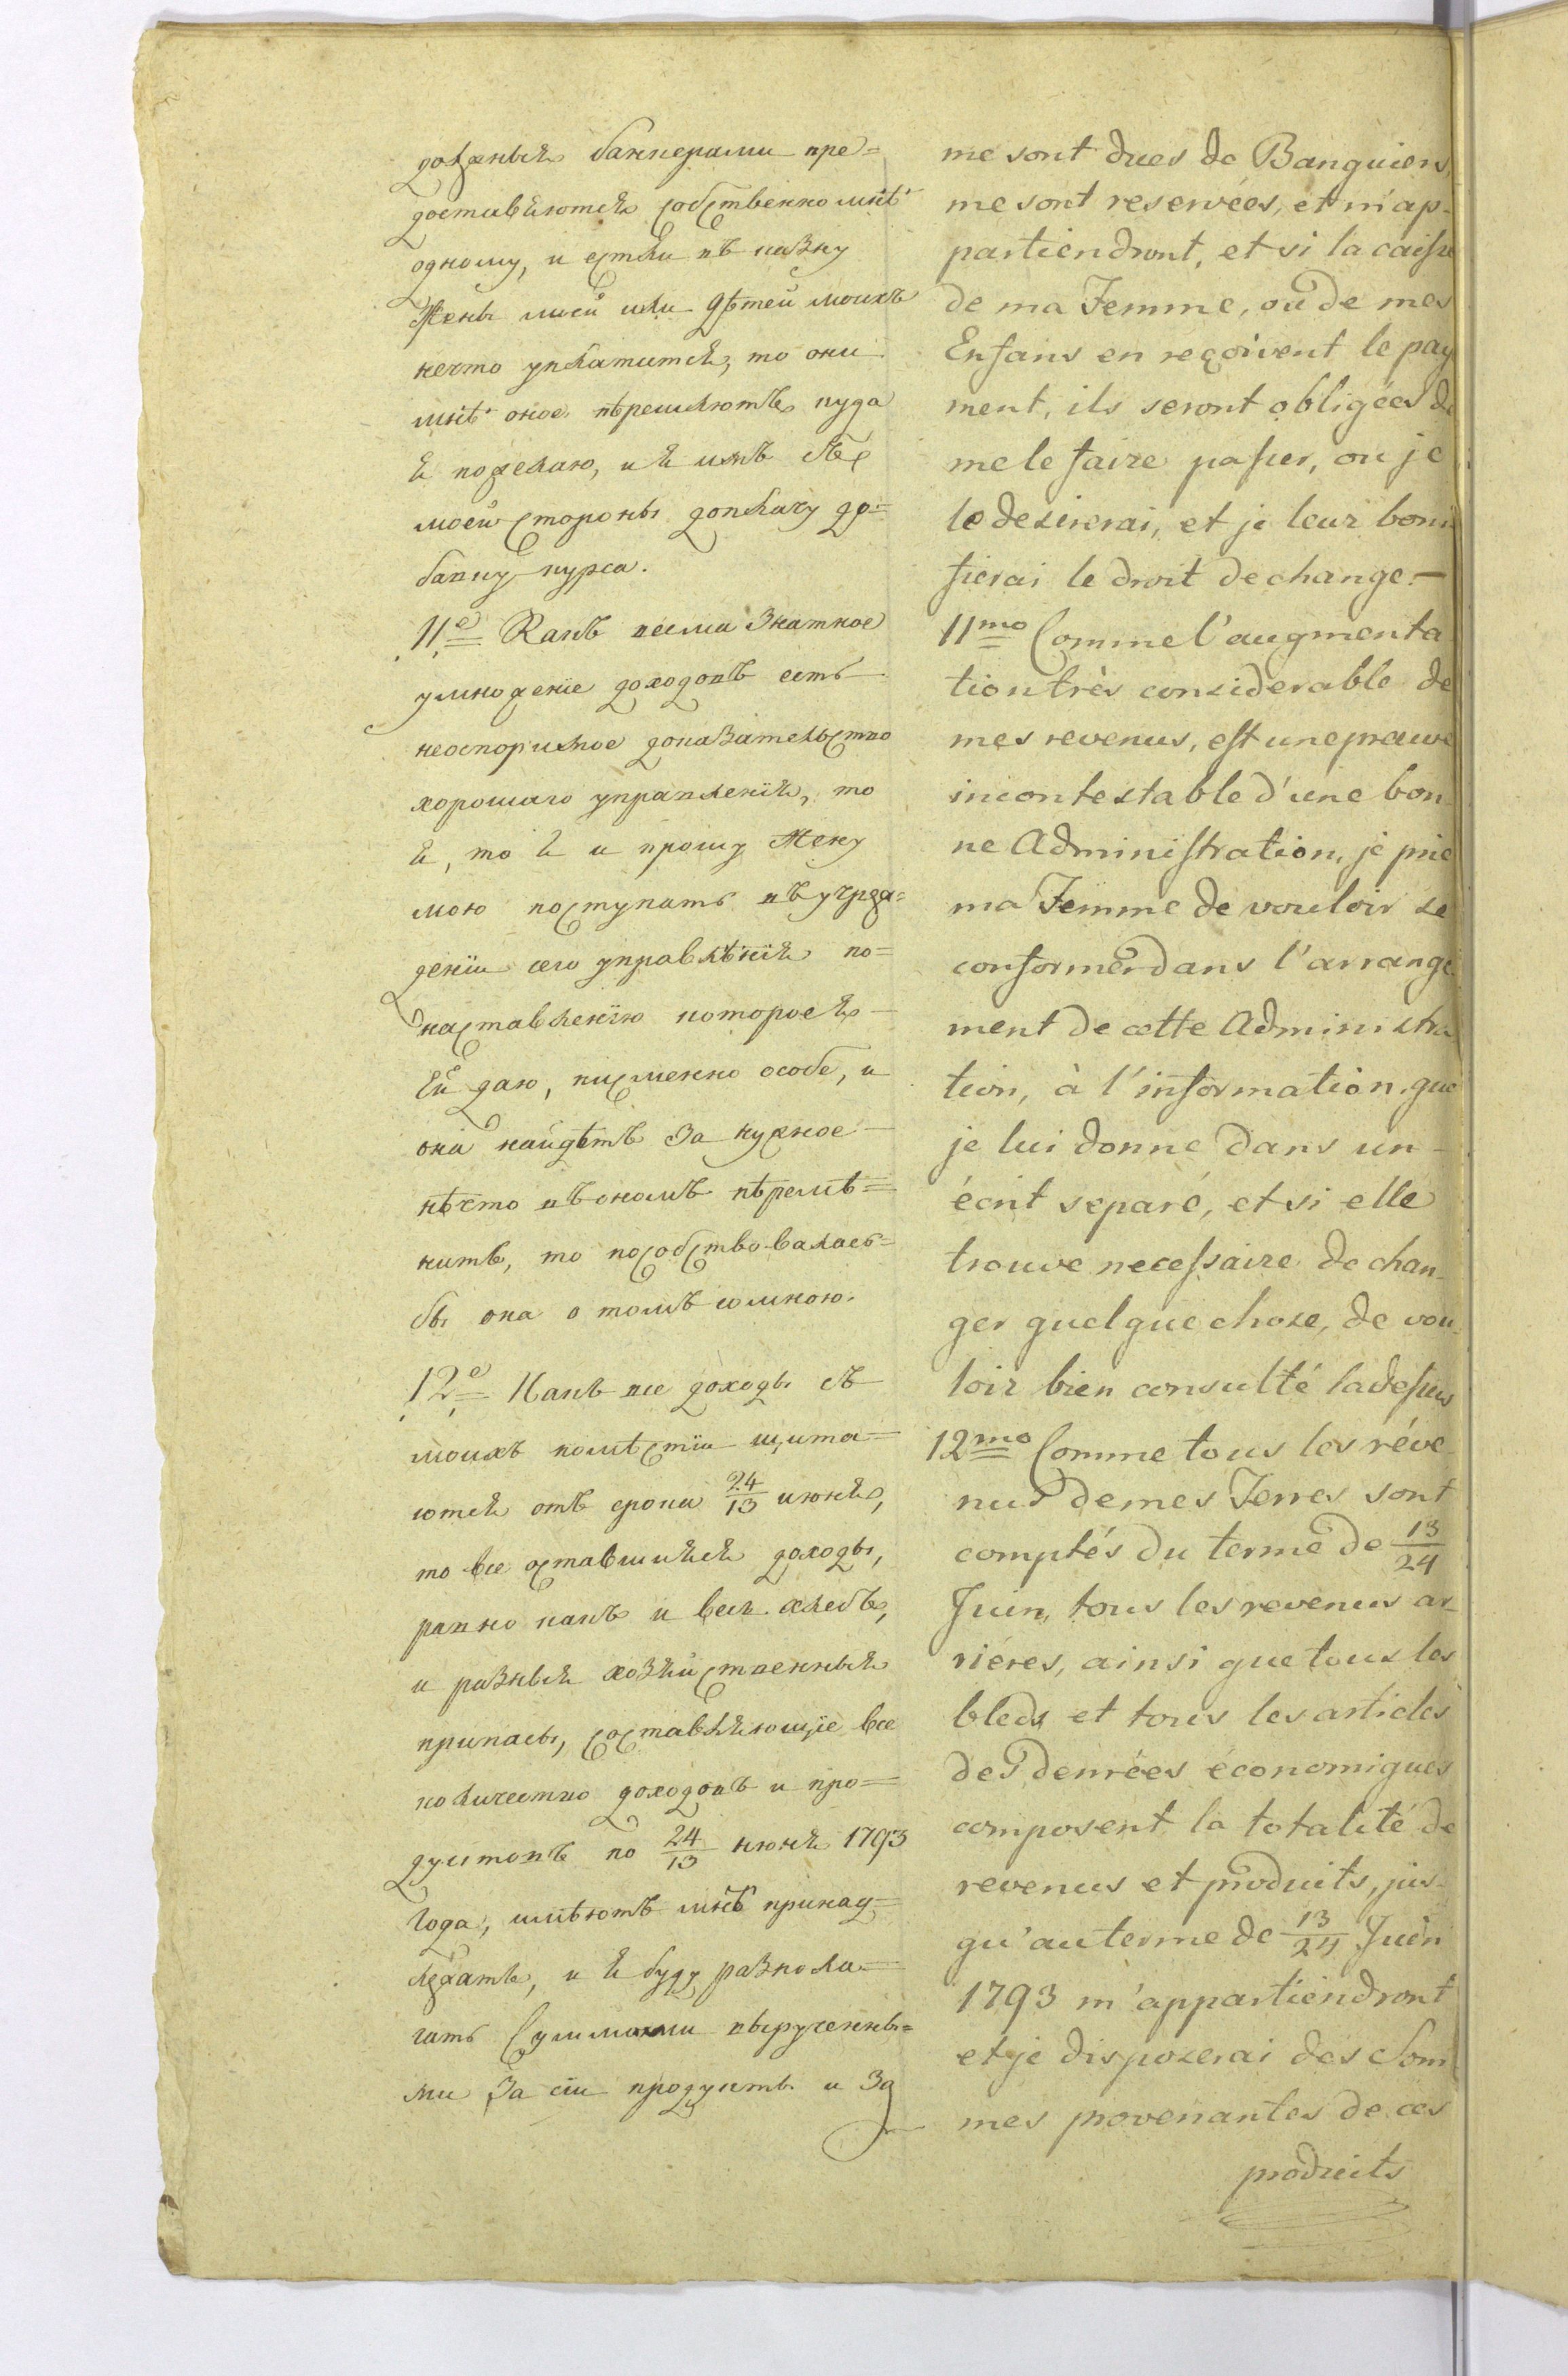 должныя банкерами пре=
доставляются собственно мнѣ
одному, и естли въ казну
Жены моей или дѣтей моихъ
нечто уплатится, то они
мнѣ оное перешлютъ куда
я пожелаю, и я имъ съ
моей стороны доплачу до=
бавку курса.
11е Какъ весма знатное
умножение доходовъ есть
неоспоримое доказательство
хорошаго управления, то
я, то я и прошу Жену
мою поступать въ учреж=
дении сего управлѣния по=
наставлению которое я
Ей даю, писменно особе, и
она найдѣтъ за нужное
нѣчто въ ономъ перемѣ=
нить, то посовѣтовалась=
бы она о томъ со мною.
12е Какъ все доходы съ
моихъ помѣстiи щита=
ются отъ срока 24/13 июня,
то все оставшияся доходы,
равно какъ и весь хлебъ,
и разныя хозяйственныя
припасы, составляющие все
количество доходовъ и про=
дуктовъ по 24/13 июня 1793
года, имѣютъ мнѣ принад=
лежать, и я буду разпола=
гать Суммами вырученны=
ми За сiи продукты и За
me sont dues de Banquiers,
me sont reservées, et m'ap-
partiendront, et si la caisse
de ma Femme, ou de mes
Enfans en reçoivent le pay
ment, ils seront obligées de
me le faire passer, ou je
le desirerai, et je leur boni
fierai le droit de change.—
11mo Comme l'augmenta
tion très considerable de
mes revenus, est une preuve
incontestable d'une bon
ne Administration, je prie
ma Femme de vouloir se
conformer dans l'arrange
ment de cette Administra
tion, à l'information que
je lui donne dans un—
écrit separé, et si elle
trouve necessaire de chan-
ger quelque chose, de vou-
loir bien consulté ladessus
12mo Comme tous les réve
nus de mes Terres sont
comptés du terme de 13/24
Juin, tous les revenus ar-
riéres, ainsi que tous les
bleds et tous les articles
des denrées économiques
composent la totalité de
revenus et produits, jus-
qu'au terme de 13/24 Juin
1793 m'appartiendront
et je disposerai des Som
mes provenantes de ces
produits